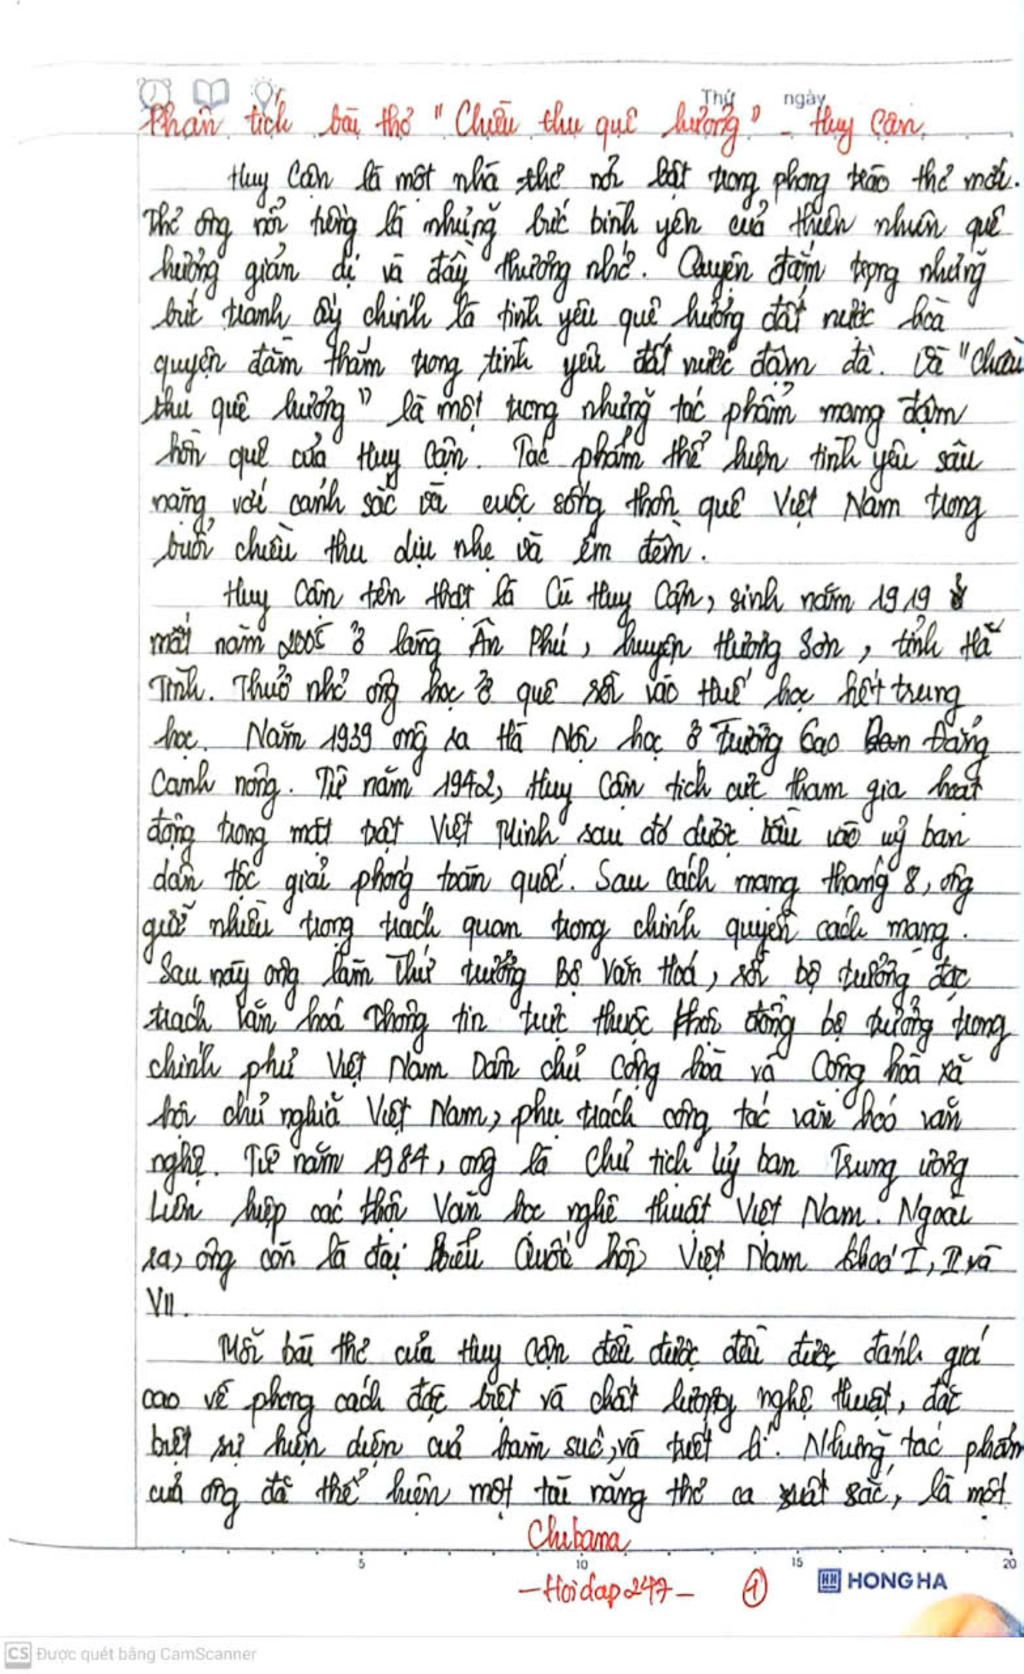 Thứ ngày
Phân tích bài thơ "Chiều thu quê hương" - Huy Cận.
Huy Cận là một nhà thơ nổi bật trong phong trào thơ mới.
Thơ ông nổi tiếng là những bức bình yên của thiên nhiên quê
hương giản dị và đầy thương nhớ. Quyện đậm trong những
bức tranh ấy chính là tình yêu quê hương đất nước hòa
quyện đằm thắm trong tình yêu đất nước đậm đà. Và "Chiều
thu quê hương" là một trong những tác phẩm mang đậm
hồn quê của Huy Cận. Tác phẩm thể hiện tình yêu sâu
nặng với cảnh sắc và cuộc sống thôn quê Việt Nam trong
buổi chiều thu dịu nhẹ và êm đềm.
Huy Cận tên thật là Cù Huy Cận, sinh năm 1919
mất năm 2005 ở làng Ân Phú, huyện Hương Sơn, tỉnh Hà
Tĩnh. Thuở nhỏ ông học ở quê rồi vào Huế học hết trung
học. Năm 1939 ông ra Hà Nội học ở Trường Cao Đẳng
Canh nông. Từ năm 1942, Huy Cận tích cực tham gia hoạt
động trong mặt trận Việt Minh sau đó được bầu vào uỷ ban
dân tộc giải phóng toàn quốc. Sau cách mạng tháng 8, ông
giữ nhiều trọng trách quan trong chính quyền cách mạng.
Sau này ông làm Thứ trưởng Bộ Văn Hoá, rồi bộ trưởng đặc
trách Văn hoá Thông tin trực thuộc Hội đồng bộ trưởng trong
chính phủ Việt Nam Dân chủ Cộng hoà và Cộng hoà xã
hội chủ nghĩa Việt Nam, phụ trách công tác văn hoá văn
nghệ. Từ năm 1984, ông là Chủ tịch Uỷ ban Trung ương
Liên hiệp các Hội Văn học nghệ thuật Việt Nam. Ngoài
ra, ông còn là đại biểu Quốc hội Việt Nam khoá I, II và
VII.
Mỗi bài thơ của Huy Cận đều được đều được đánh giá
cao về phong cách đặc biệt và chất lượng nghệ thuật, đặc
biệt sự hiện diện của hàm súc, và triết lí. Những tác phẩm
của ông đã thể hiện một tài năng thơ ca xuất sắc, là một
Chibana
-Hoidap247-
1
5 10 15 20
HH HONG HA
CS Được quét bằng CamScanner